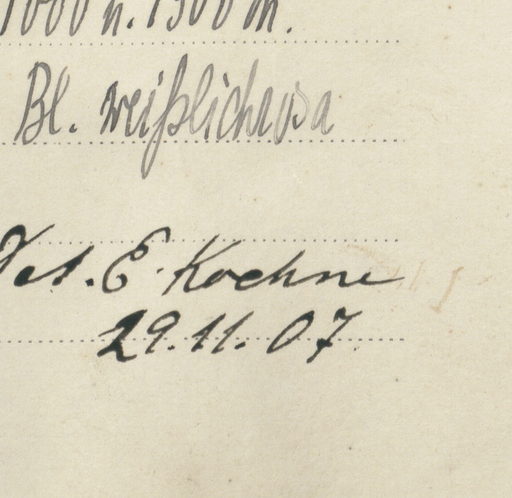 1000 u. 1300 m.
Bl. weißlichrosa
Det. E. Koehne
29.11.07.